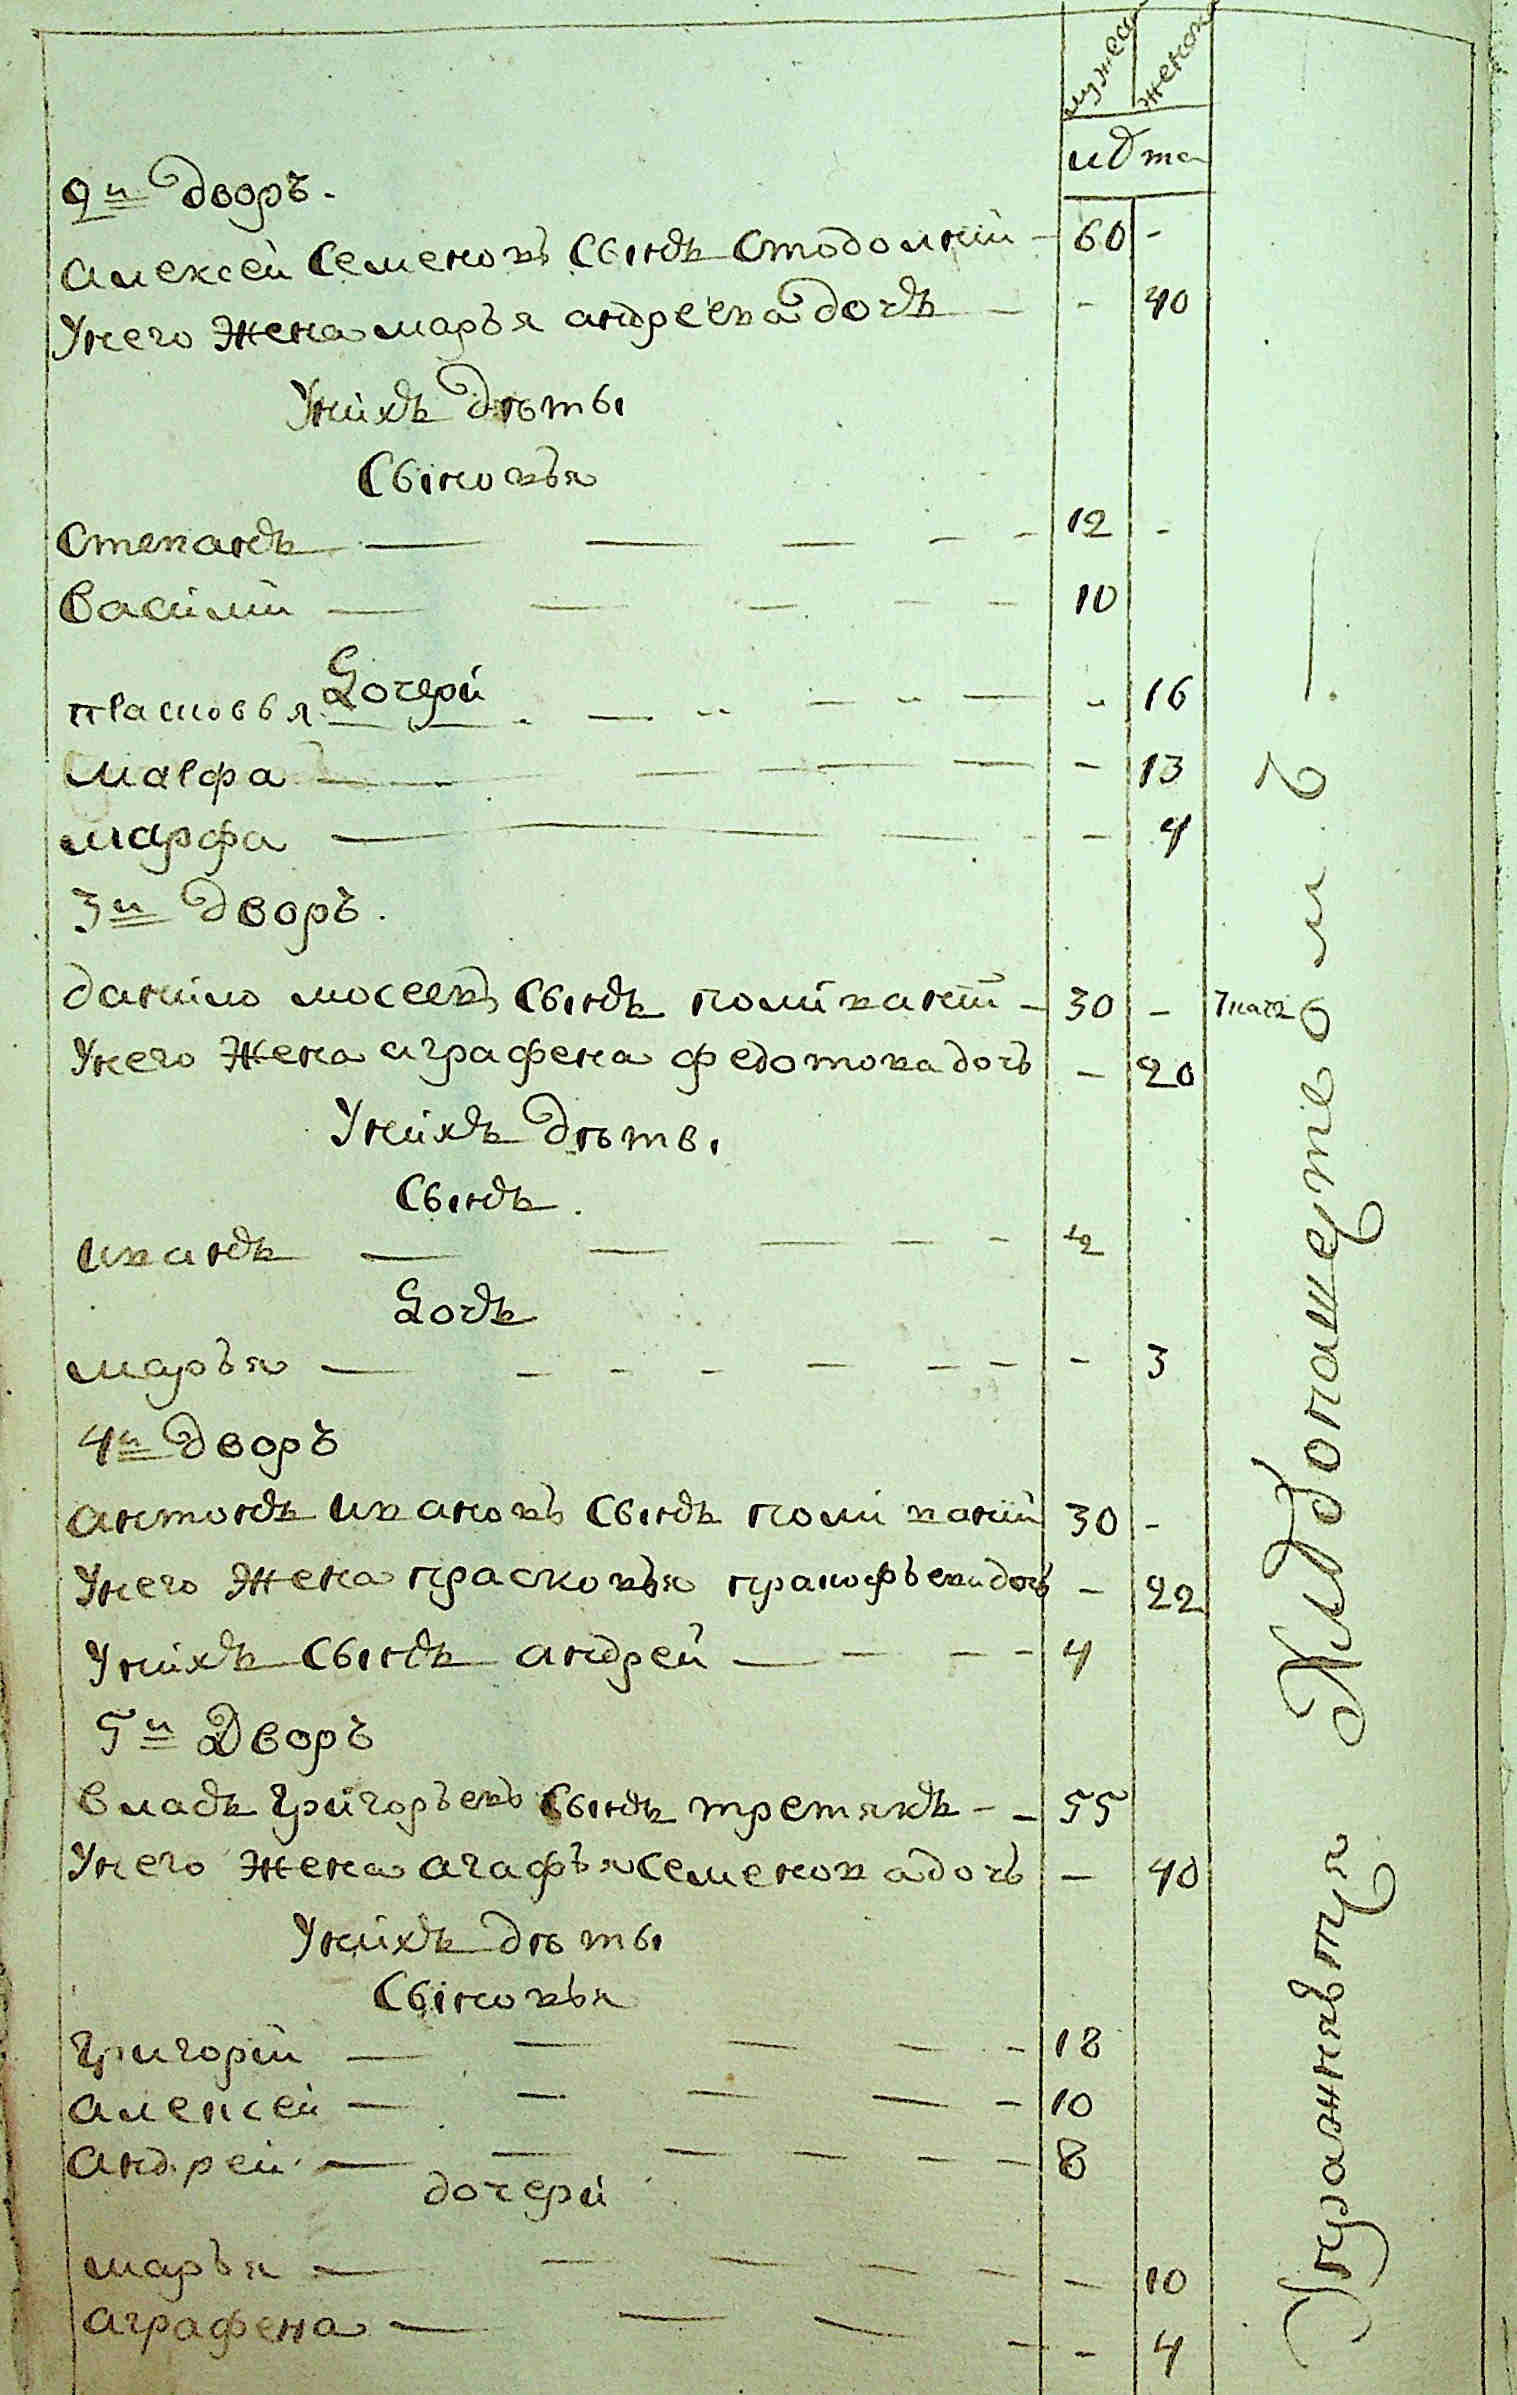 мужеск женск
лѣта
2й Дворъ.
алексей Семеновъ Сынъ Стодолний 60 -
Унего жена марья андреева дочь - 40
Унихъ дѣты
Сыновья
Степанъ 12 -
Василий 10
Дочери
прасковья - 16
марфа - 13
марфа - 4
3й Дворъ.
данило мосеевъ Сынъ поливаний 30 - Ткачъ
Унего жена аграфена федотова дочь - 20
Унихъ дѣты
Сынъ.
иванъ ½
Дочь
марья - 3
4й Дворъ
антонъ ивановъ Сынъ поливаний 30 -
Унего жена прасковья дочь - 22
Унихъ Сынъ андрей 4
5й Дворъ
власъ григорьевъ Сынъ третякъ 55
Унего жена агафья семенова дочь - 40
Унихъ дѣты
Сыновья
григорий 18
алексей 10
андрей 8
дочери
марья - 10
аграфена - 4
Упражняютця Хлѣбопашествомъ